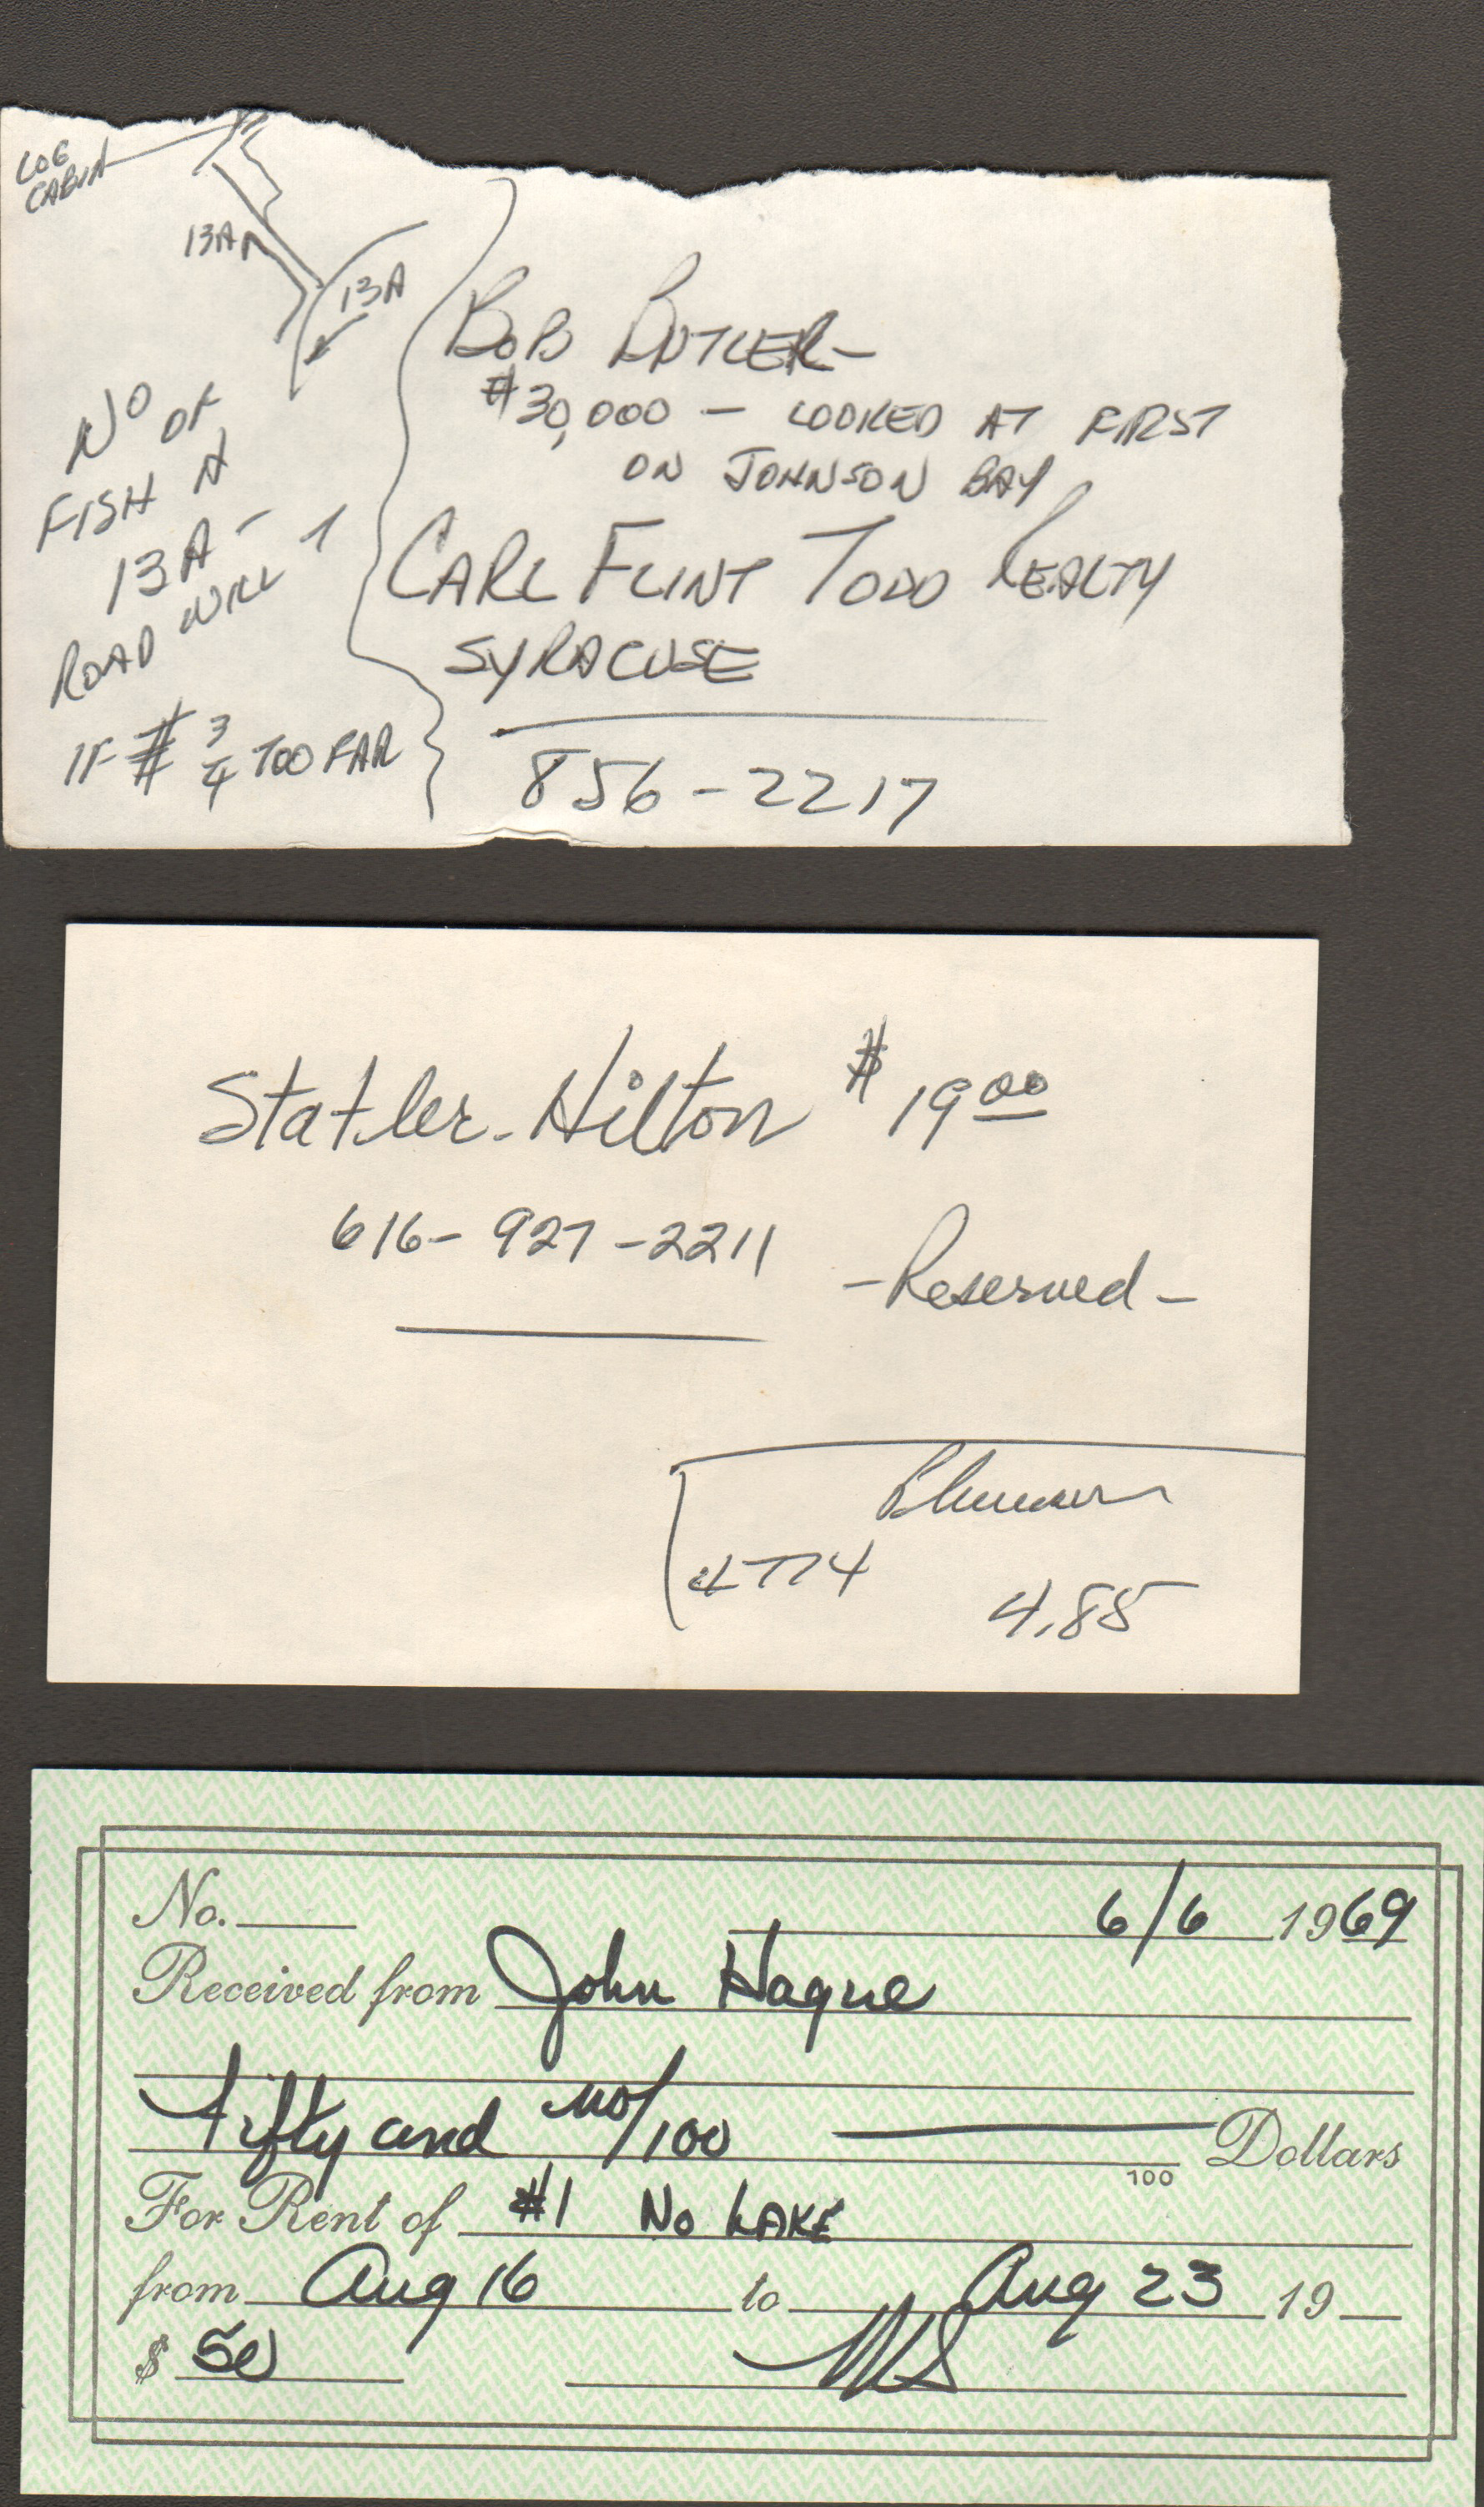 LOG
CABIN
13A
13A
NO OF
FISH N
13A -
ROAD WILL
IF # 3/4 TOO FAR
BOB BUTLER -
$30,000 - LOOKED AT FIRST
ON JOHNSON BAY
CARL FLINT TODD REALTY
SYRACUSE
856-2217
Statler-Hilton $19.00
616-927-2211
-Reserved-
4774
4.85
No.
6/6 1969
Received from John Hague
fifty and no/100 Dollars
100
For Rent of #1 No LAKE
from Aug 16 to Aug 23 19
$ 50
MS